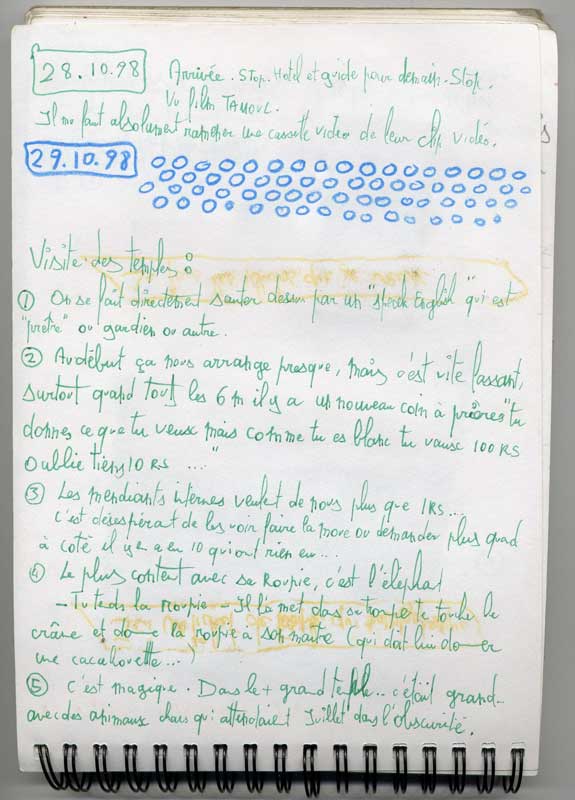 28.10.98 Arrivée. Stop. Hotel et guide pour demain. Stop.
Vu film TAMOUL.
Il me faut absolument ramener une cassette video de leur clip vidéo.
29.10.98
Visite des temples :
① On se fait directement sauter dessus par un "speak English" qui est
"prêtre" ou gardien ou autre.
② Au début ça nous arrange presque, mais c'est vite lassant,
surtout quand tout les 6 m il y a un nouveau coin à prières "tu
donnes ce que tu veux mais comme tu es blanc tu vaux 100 RS
oublie tiens 10 RS ...."
③ Les mendiants internes veulent de nous plus que 1RS....
c'est désespérant de les voir faire la moue ou demander plus quand
à coté il y en a en 10 qui ont rien eu...
④ Le plus content avec sa Roupie, c'est l'éléphant
- Tu tends la roupie - Il la met dans sa trompe te touche le
crâne et donne la roupie à son maitre (qui doit lui donner
une cacahouette...)
⑤ C'est magique. Dans le + grand temple... c'était grand
avec des animaux chars qui attendaient Juillet dans l'obscurité.